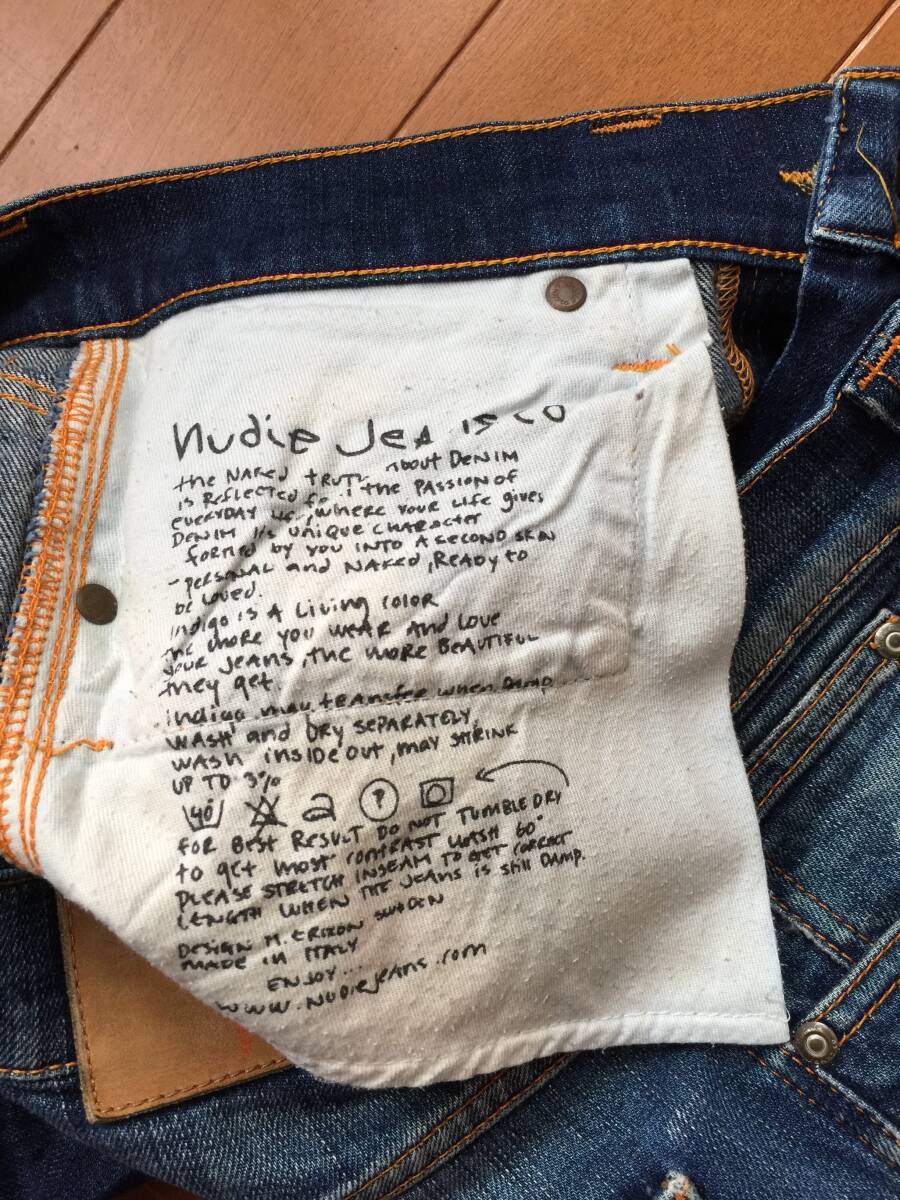 Nudie Jeans co
the NAKED tRUTh About DENIM
is Reflected the PASSION of
everyday where YOUR LiFe gives
DENIM its uNiQue CHARActer
formed by YOU INTO A SECOND SKIN
- PERSONAL and NAKED, READY to
be Loved.
Indigo is A Living COLOR
the more you WEAR AND LOVE
YOUR JEANS, the MORE BeAUTIFUL
they get.
indigo may tRANSFER when DAMP
WASH and DRY SEPARATELY,
WASH insiDe out, may SHRINK
UP TO 3%
40
FOR BEST RESULT DO NOT TUMBLE DRY
to get most CONTRAST WASH 60°
PLEASE STRETCH INSEAM TO GET CORRECT
LENGTH WHEN THE JEANS is still DAMP.
DESIGN M. ERIXON SWEDEN
MADE IN ITALY
ENJOY...
WWW.NUDIEJEANS.COM